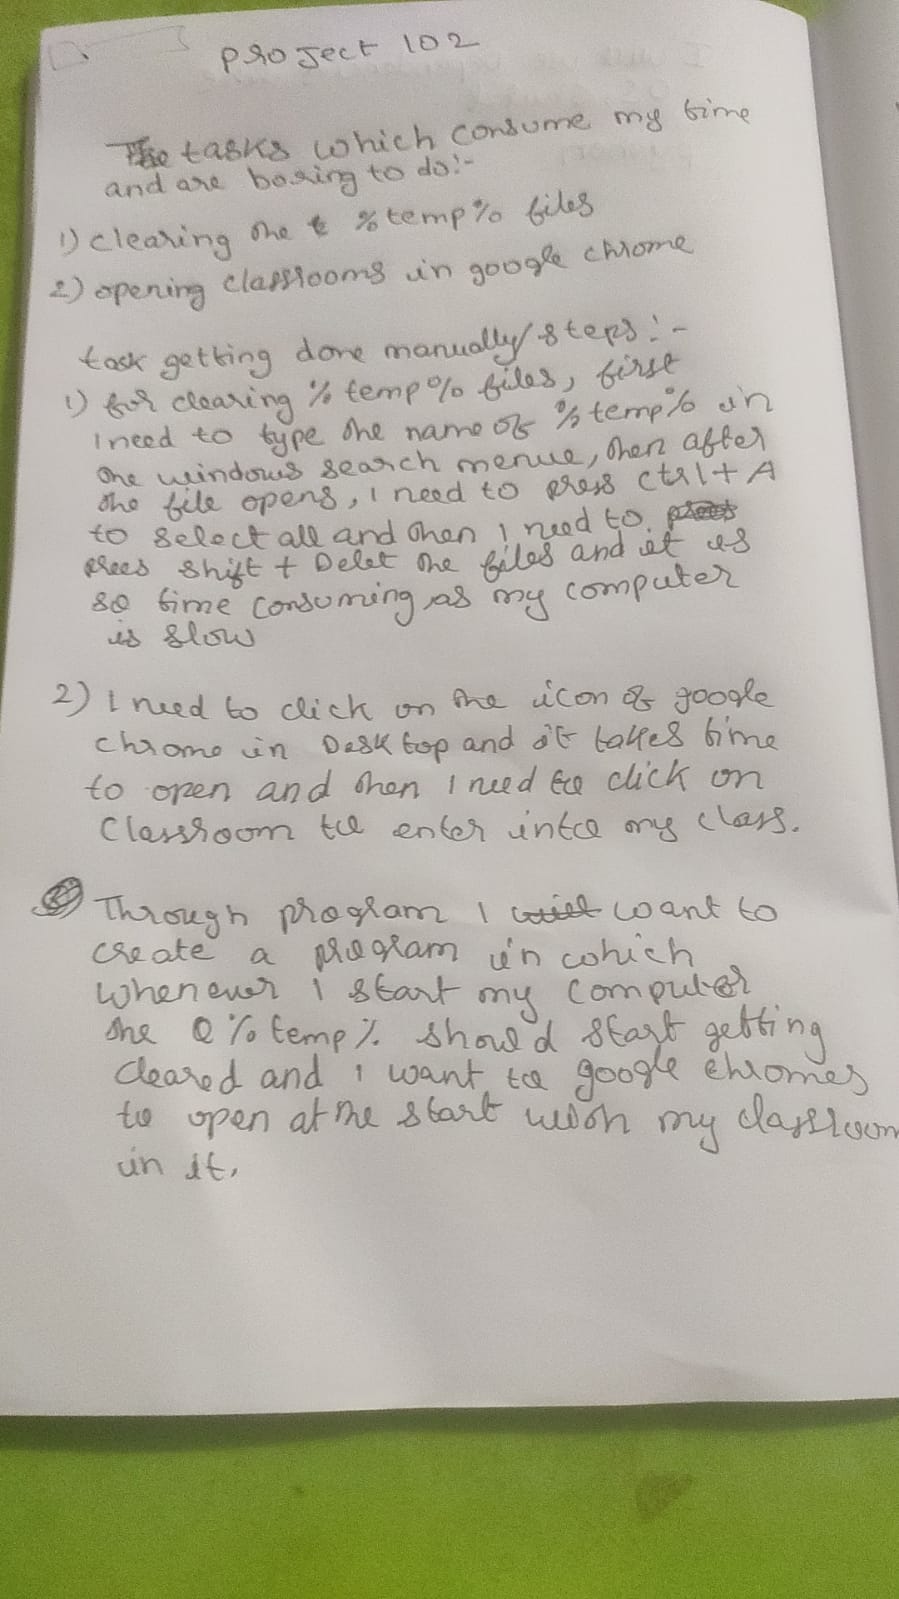 Project 102
The tasks which consume my time
and are boring to do:-
1) clearing the %temp% files
2) opening classrooms in google chrome
task getting done manually/steps:-
1) for clearing %temp% files, first
I need to type the name of %temp% in
the windows search menue, then after
the file opens, I need to press ctrl + A
to select all and then I need to
press shift + Delet the files and it is
so time consuming as my computer
is slow
2) I need to click on the icon of google
chrome in Desktop and it takes time
to open and then I need to click on
Classroom to enter into my class.
Through program I want to
create a program in which
whenever I start my computer
the %temp% should start getting
cleared and I want to google chromes
to open at the start with my classroom
in it.